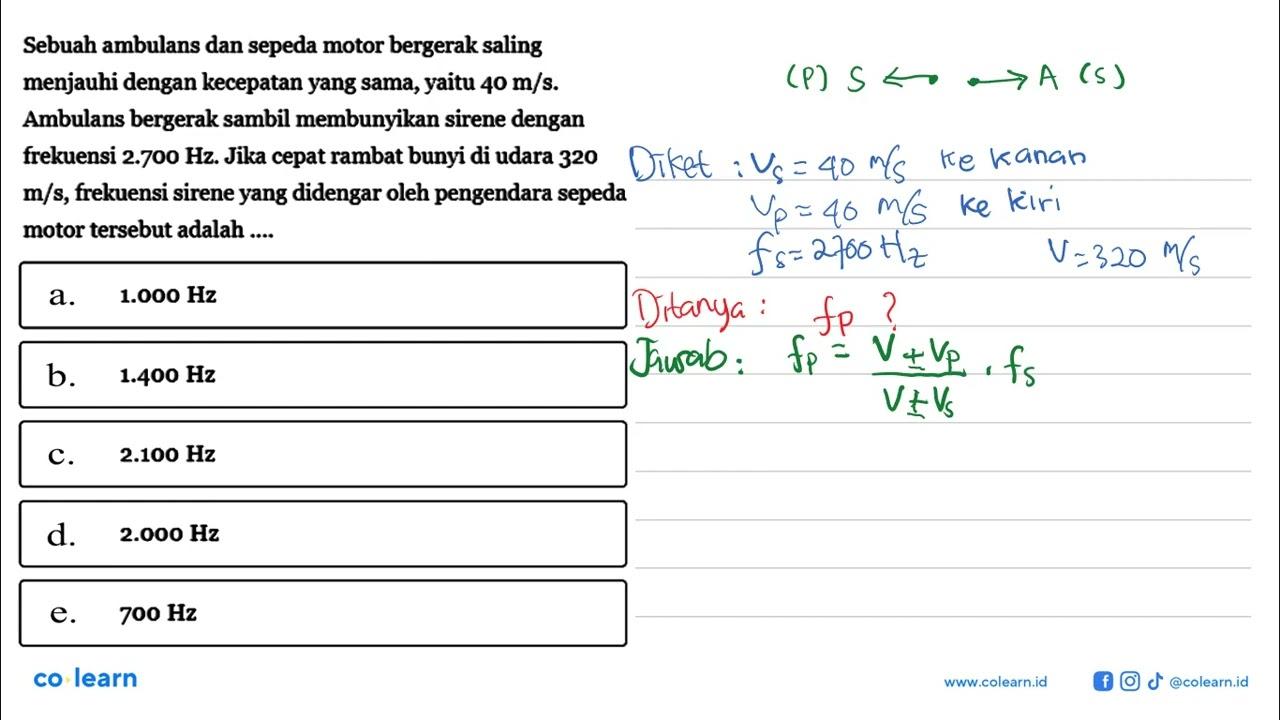 Sebuah ambulans dan sepeda motor bergerak saling
menjauhi dengan kecepatan yang sama, yaitu 40 m/s.
Ambulans bergerak sambil membunyikan sirene dengan
frekuensi 2.700 Hz. Jika cepat rambat bunyi di udara 320
m/s, frekuensi sirene yang didengar oleh pengendara sepeda
motor tersebut adalah ....
a. 1.000 Hz
b. 1.400 Hz
c. 2.100 Hz
d. 2.000 Hz
e. 700 Hz
(P) S ← → A (S)
Diket : Vs = 40 m/s ke kanan
Vp = 40 m/s ke kiri
fs = 2700 Hz V = 320 m/s
Ditanya : fp ?
Jawab : fp = V ± Vp . fs
V ± Vs
co learn
www.colearn.id @colearn.id